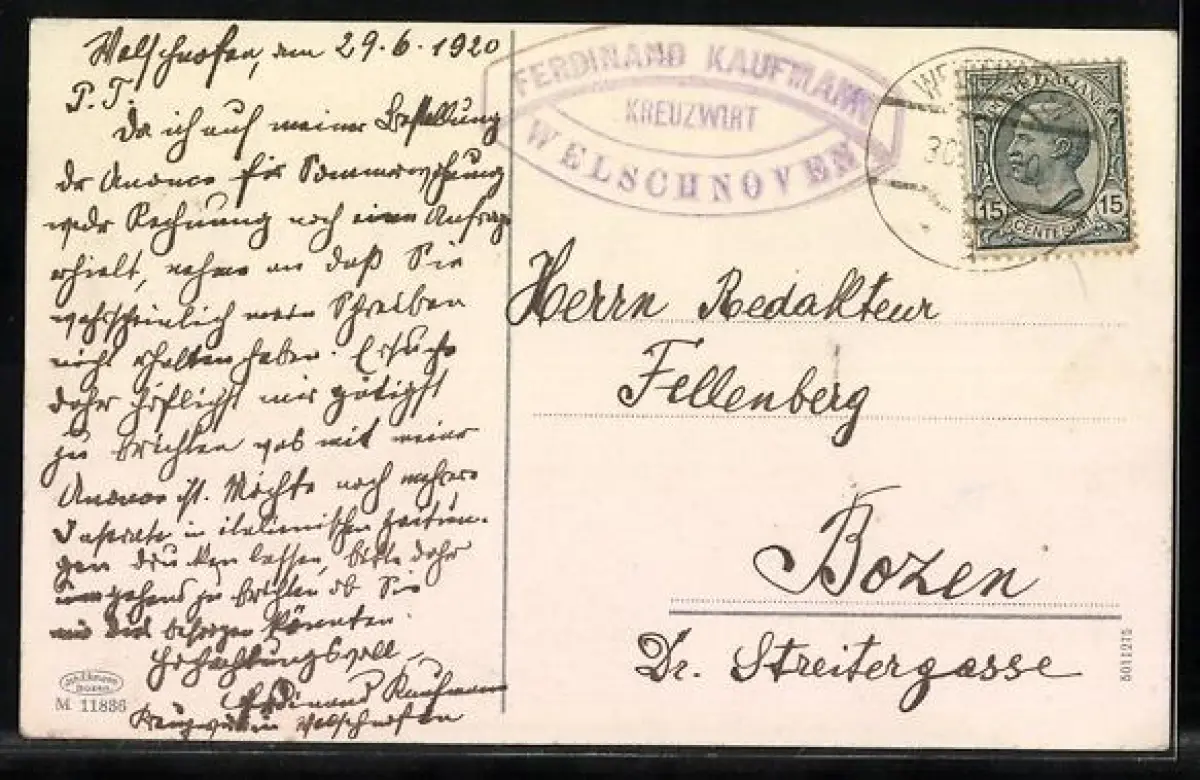 Welschnofen, am 29.6.1920
P.T.
Da ich auf meiner Bestellung
der Anonce für Sommerwohnung
weder Rechnung noch eine Anfrage
erhielt, nehme an daß Sie
wahrscheinlich mein Schreiben
nicht erhalten haben. Ersuche
daher höflichst mir gütigst
zu berichten was mit meiner
Anonce ist. Möchte noch mehrere
Inserate in italienischen Zeitun-
gen drucken lassen, bitte daher
umgehend zu berichten ob Sie
mir das besorgen könnten.
Hochachtungsvoll
Ferdinand Kaufmann
Kreuzwirt in Welschnofen
M 11836
FERDINAND KAUFMANN
KREUZWIRT
WELSCHNOVEN
30
15 15
CENTESIMI
Herrn Redakteur
Fellenberg
Bozen
Dr. Streitergasse
5011275